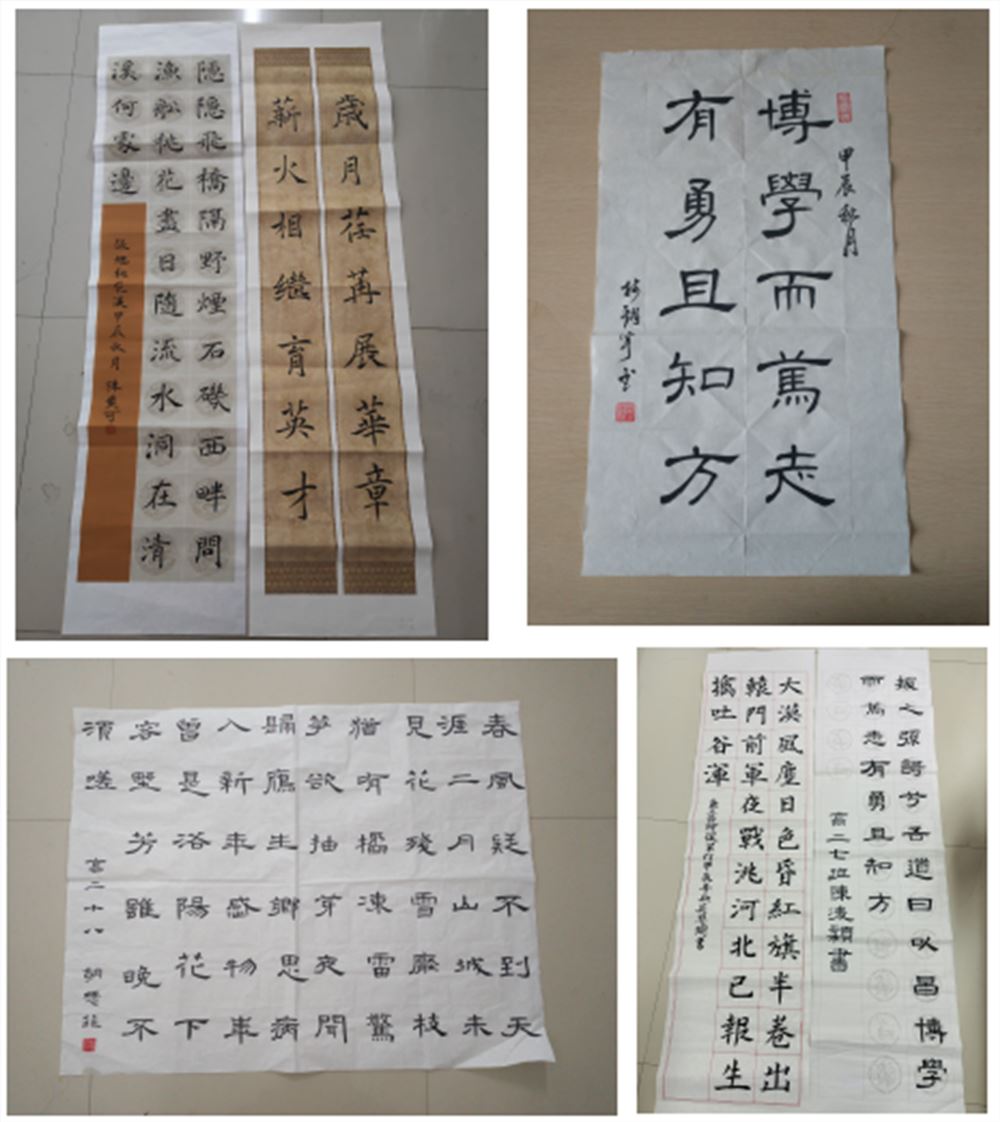 歲月荏苒展華章
薪火相繼育英才
隱隱飛橋隔野煙石磯西畔問
漁舩桃花盡日隨流水洞在清
溪何處邊
張旭桃花溪甲辰秋月
甲辰秋月
博學而篤志
有勇且知方
春風疑不到天
涯二月山城未
見花殘雪壓枝
猶有橘凍雷驚
筍欲抽芽夜聞
歸鴈生鄉思病
入新年感物華
曾是洛陽花下
客墅芳雖晚不
須嗟
高二十八
振之彌諤兮吾道曰以昌博學
而篤志有勇且知方
高二七班陳凌穎書
大漠風塵日色昏紅旗半卷出
轅門前軍夜戰洮河北已報生
擒吐谷渾